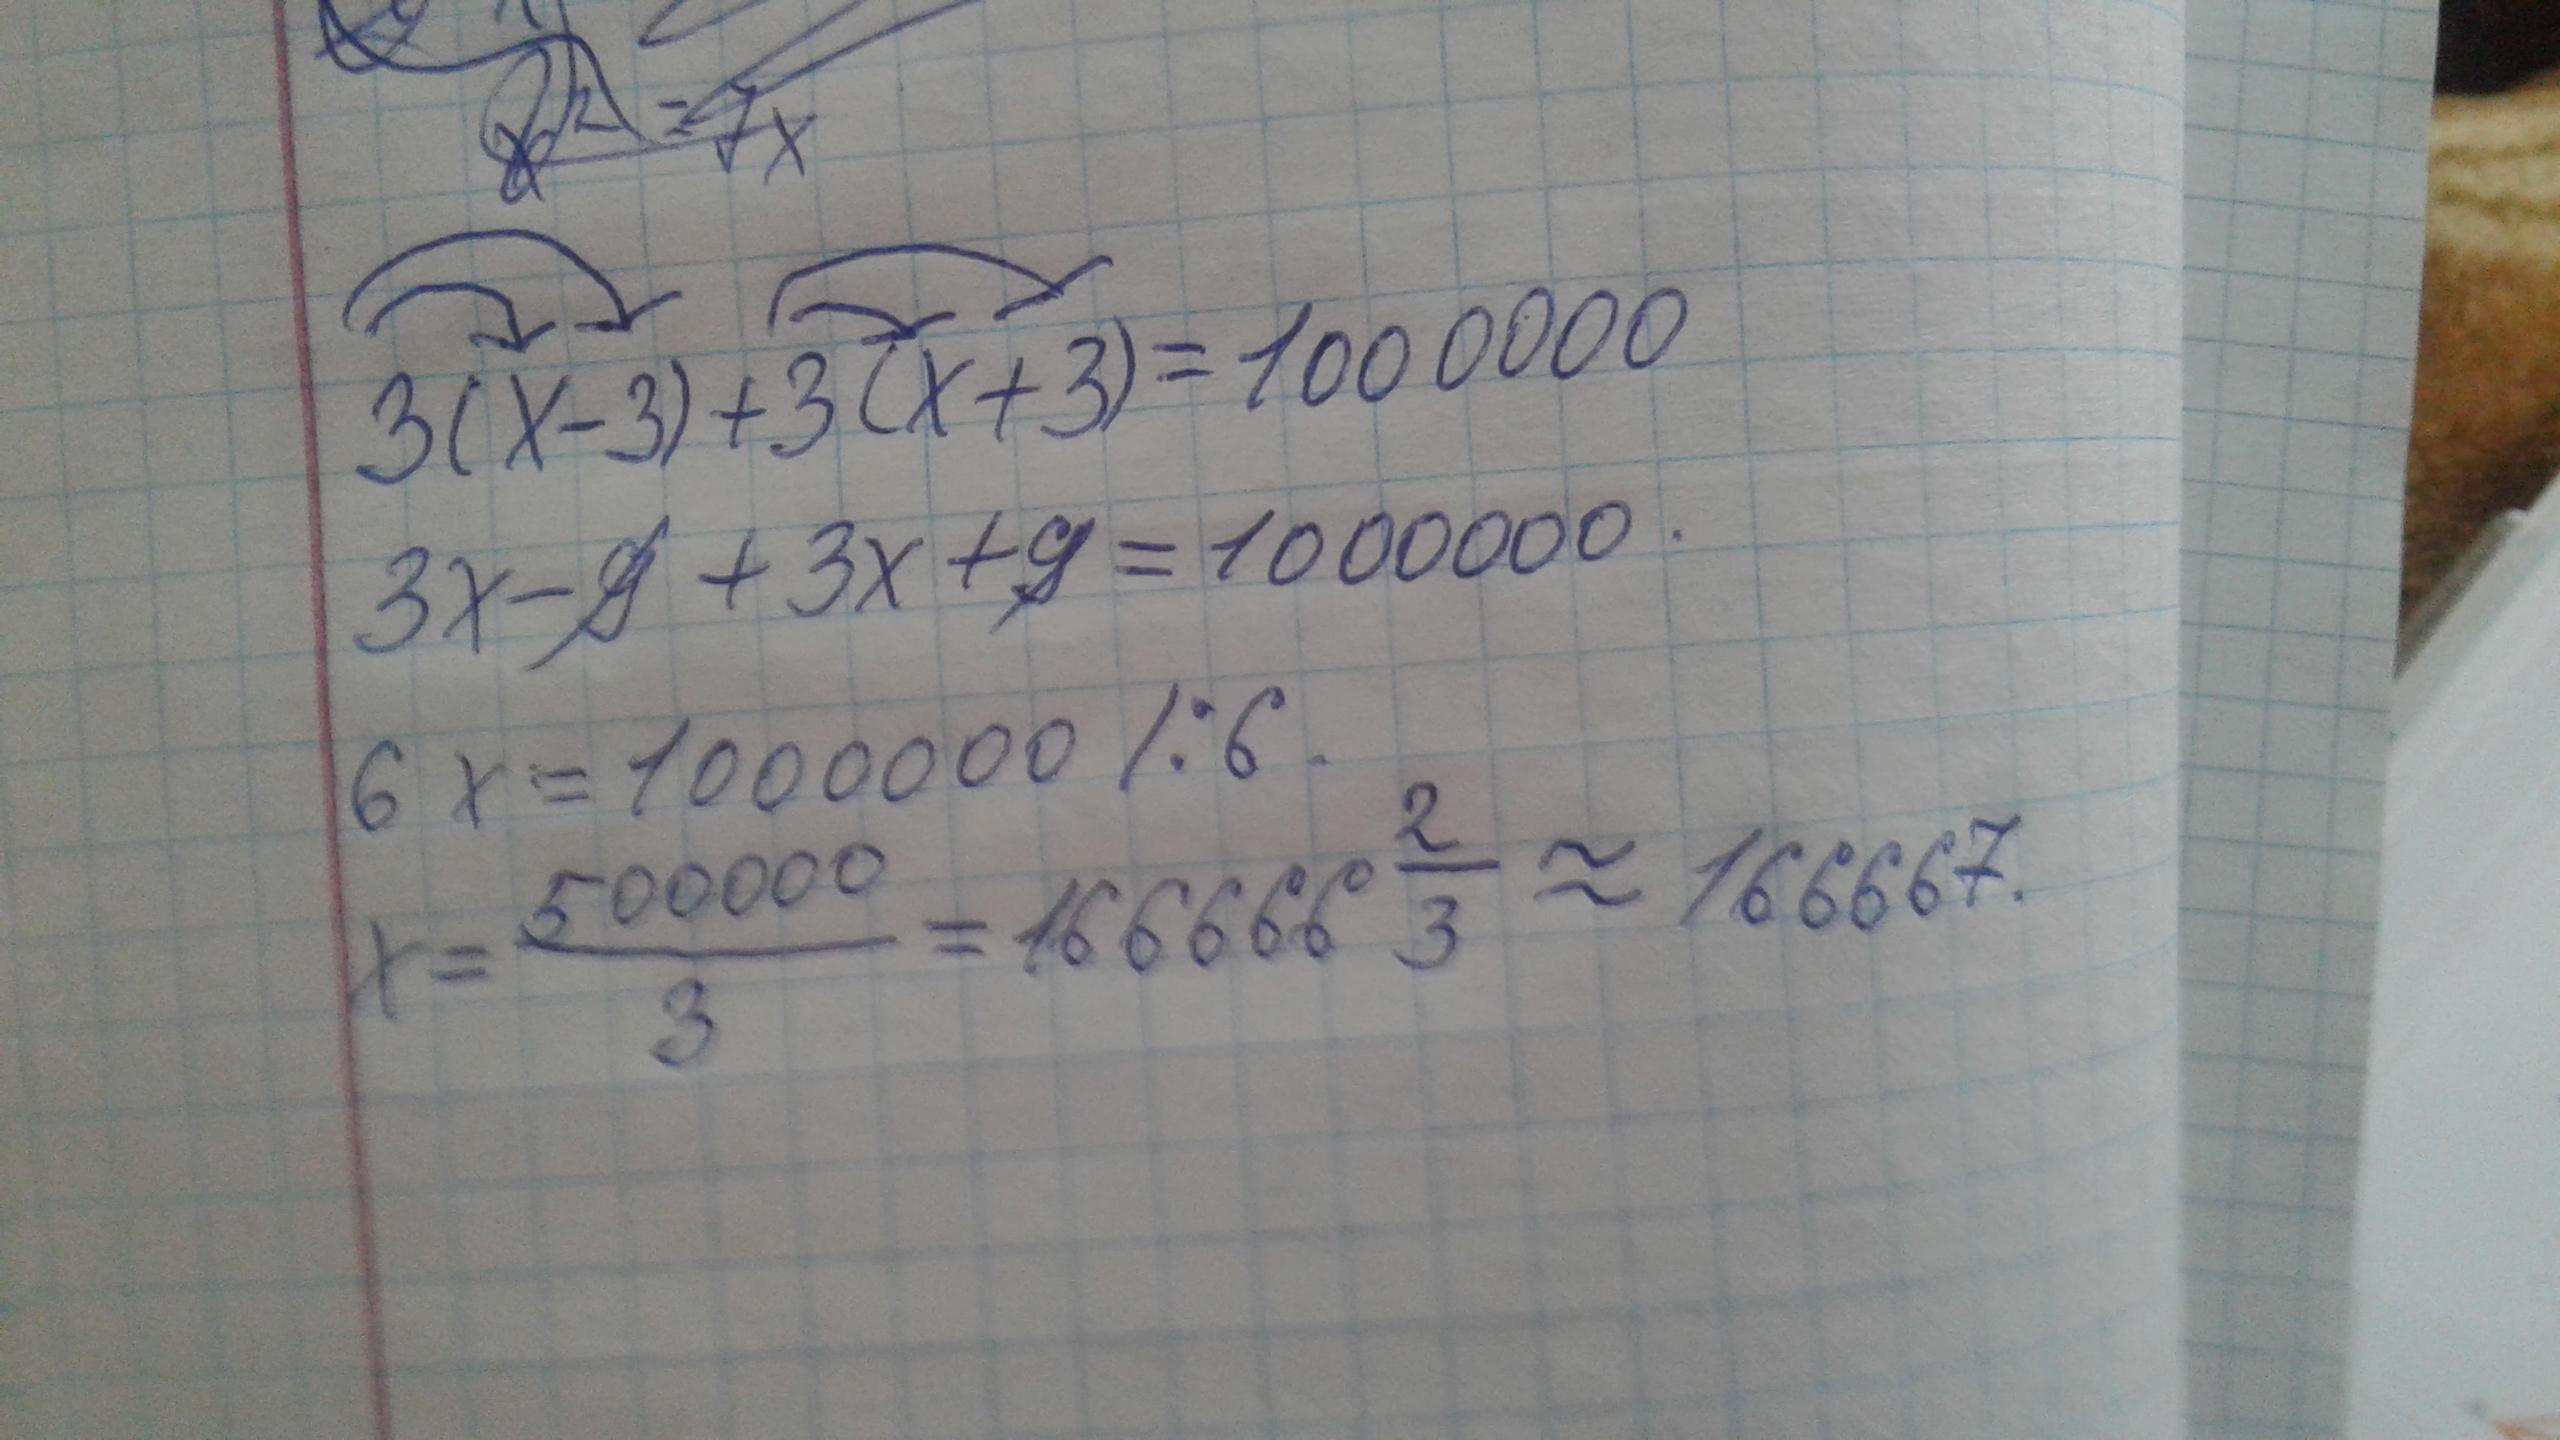 = 7x
3(x-3)+3(x+3)=1000000
3x-9+3x+9=1000000.
6x=1000000 /:6.
x=500000/3=166666 2/3≈166667.